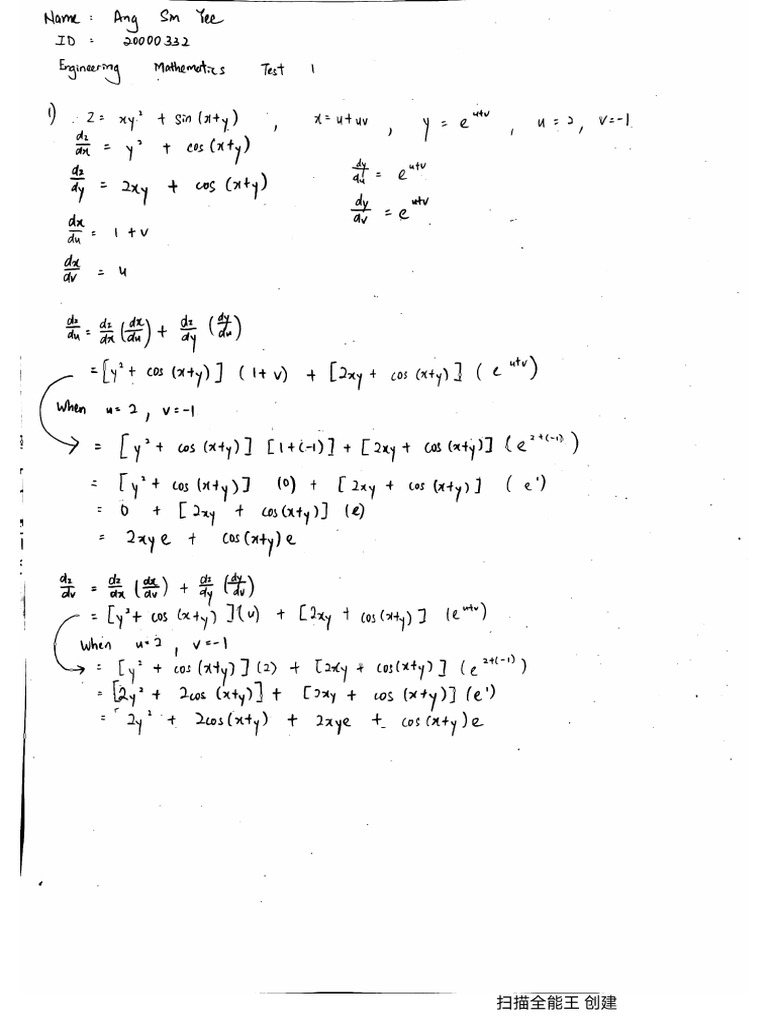 Name : Ang Sm Yee
ID : 20000332
Engineering Mathematics Test 1
1) z = xy² + sin(x+y) , x = u+uv , y = e^(u+v) , u = 2, v=-1
dz/dx = y² + cos(x+y)
dy/du = e^(u+v)
dz/dy = 2xy + cos (x+y)
dy/dv = e^(u+v)
dx/du = 1+v
dx/dv = u
dz/du = dz/dx (dx/du) + dz/dy (dy/du)
= [y² + cos (x+y)] (1+v) + [2xy + cos (x+y)] (e^(u+v))
When u=2 , v=-1
= [y² + cos (x+y)] [1+(-1)] + [2xy + cos (x+y)] (e^(2+(-1)))
= [y² + cos (x+y)] (0) + [2xy + cos (x+y)] (e¹)
= 0 + [2xy + cos(x+y)] (e)
= 2xye + cos(x+y)e
dz/dv = dz/dx (dx/dv) + dz/dy (dy/dv)
= [y² + cos (x+y)](u) + [2xy + cos(x+y)] (e^(u+v))
When u=2 , v=-1
= [y² + cos(x+y)](2) + [2xy + cos(x+y)] (e^(2+(-1)))
= [2y² + 2cos (x+y)] + [2xy + cos (x+y)] (e¹)
= 2y² + 2cos(x+y) + 2xye + cos(x+y)e
扫描全能王 创建